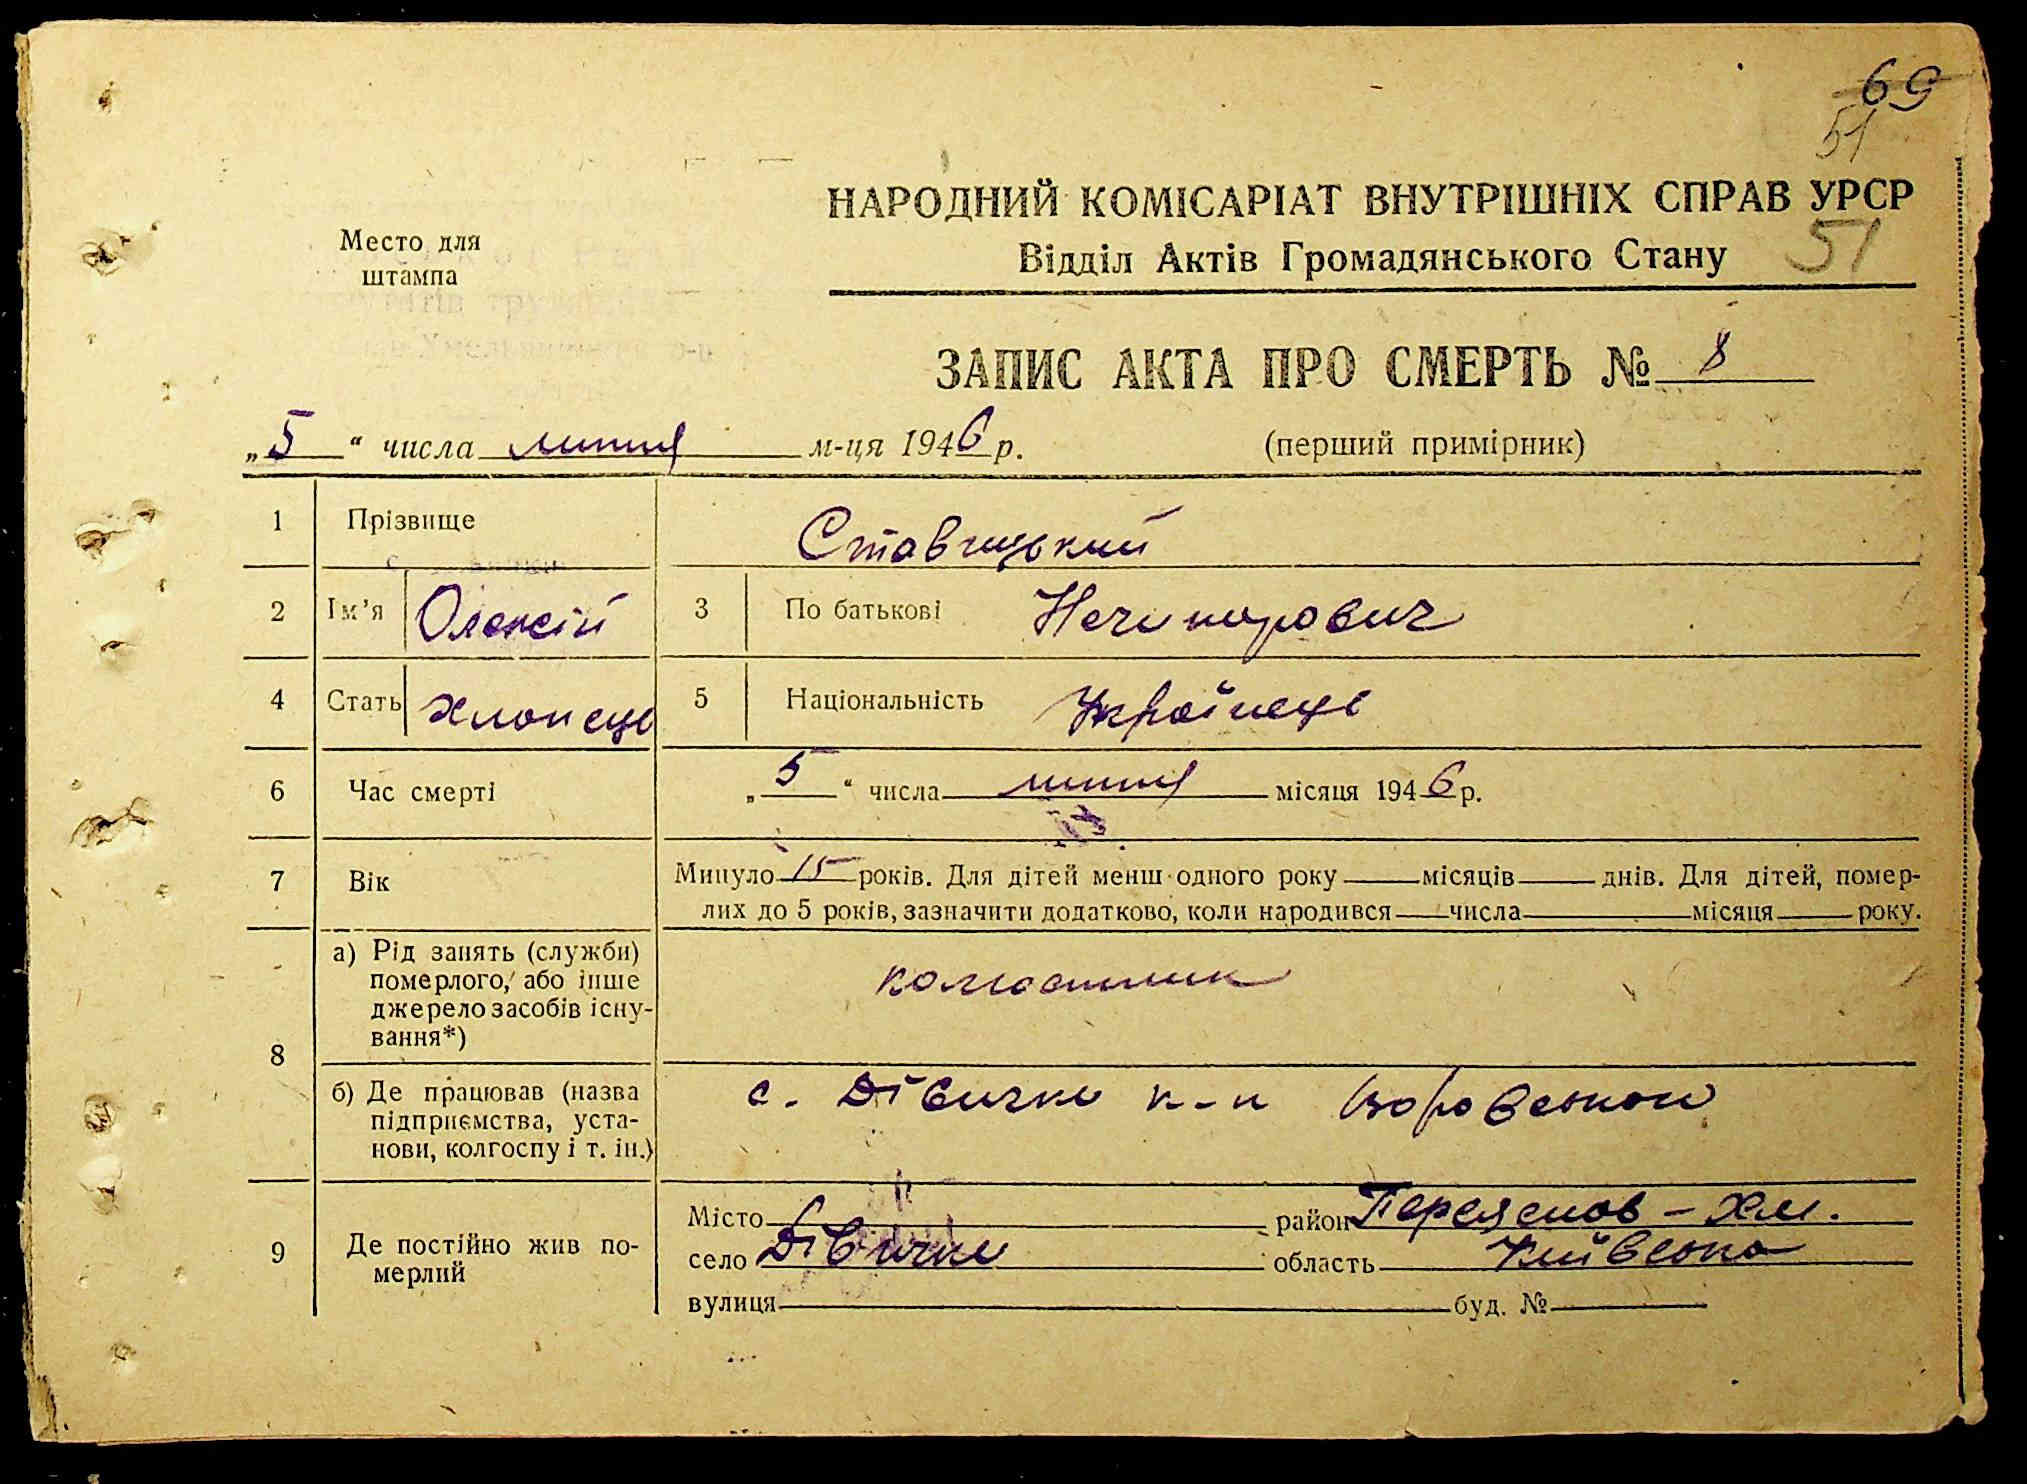 69
51
НАРОДНИЙ КОМІСАРІАТ ВНУТРІШНІХ СПРАВ УРСР
Відділ Актів Громадянського Стану 51
Место для
штампа
ЗАПИС АКТА ПРО СМЕРТЬ № 8
„5“ числа липня м-ця 1946 р. (перший примірник)
1 Прізвище Ставицький
2 Ім’я Олексій 3 По батькові Нечипорович
4 Стать хлопець 5 Національність Українець
6 Час смерті „5“ числа липня місяця 1946 р.
7 Вік Минуло 15 років. Для дітей менш одного року місяців днів. Для дітей, помер-
лих до 5 років, зазначити додатково, коли народився числа місяця року.
8 а) Рід занять (служби)
померлого, або інше
джерело засобів існу-
вання*)
колгоспник
б) Де працював (назва
підприємства, уста-
нови, колгоспу і т. ін.)
с. Дівички к-п
9 Де постійно жив по-
мерлий
Місто район Переяслов-Хм.
село Дівички область Київська
вулиця буд. №